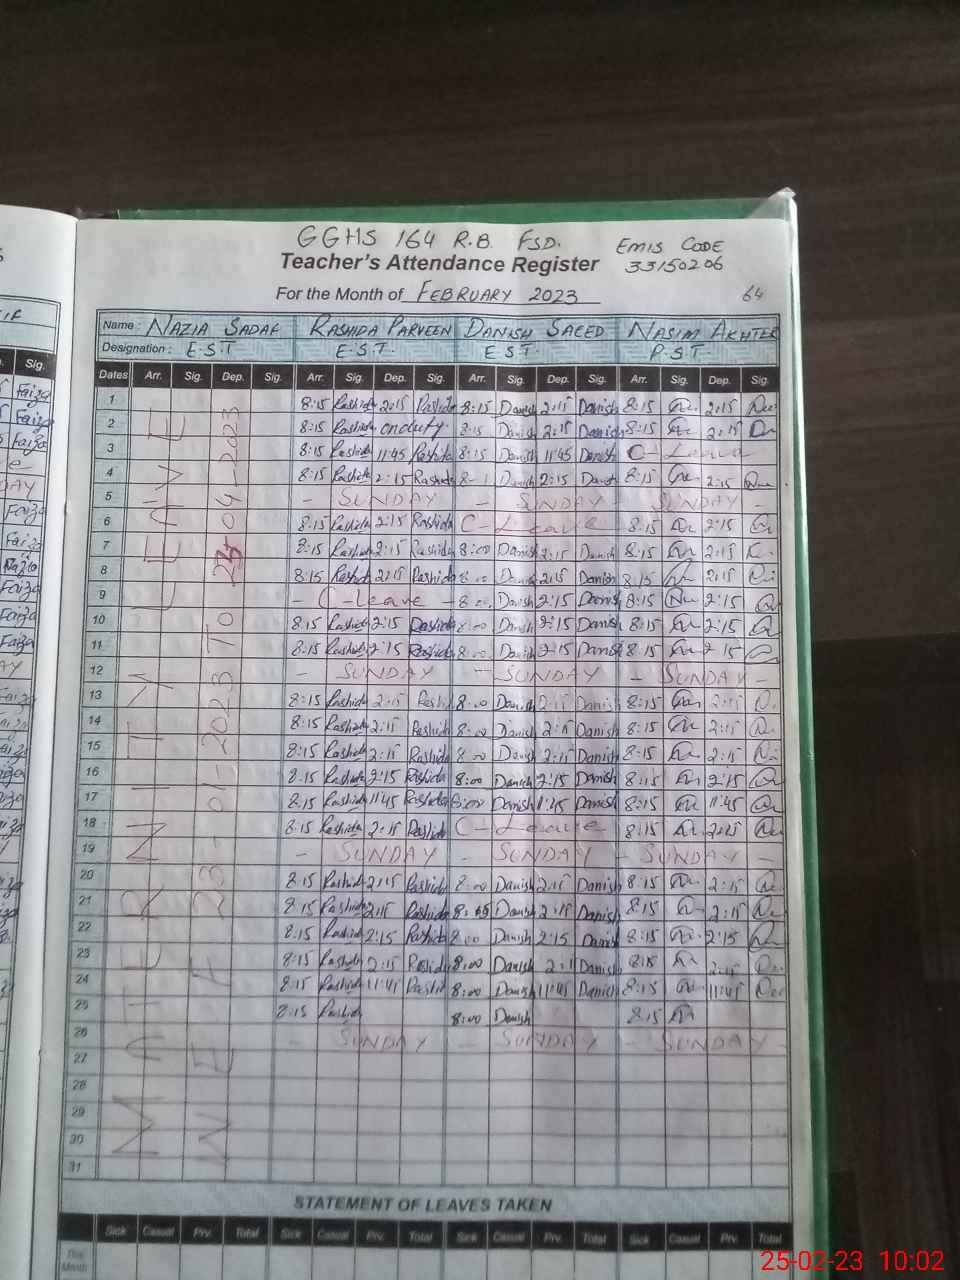 GGHS 164 R.B. FSD. EMIS CODE
Teacher's Attendance Register 33150206
For the Month of FEBRUARY 2023 64
Name: NAZIA SADAF RASHIDA PARVEEN DANISH SAEED NASIM AKHTER
Designation: E.S.T E.S.T. E.S.T. P.S.T.
Dates Arr. Sig. Dep. Sig. Arr. Sig. Dep. Sig. Arr. Sig. Dep. Sig. Arr. Sig. Dep. Sig.
MATERNITY LEAVE
W.E.F 23-01-2023 TO
1 8:15 Rashida 2:15 Rashida 8:15 Danish 2:15 Danish 8:15 2:15
2 8:15 Rashida onduty. 8:15 Danish 2:15 Danish 8:15 2:15
3 8:15 Rashida 11:45 Rashida 8:15 Danish 11:45 Danish C-Leave
4 8:15 Rashida 2:15 Rashida Danish 2:15 Danish 8:15 2:15
5 - SUNDAY - SUNDAY - SUNDAY -
6 8:15 Rashida 2:15 Rashida C-Leave 8:15 2:15
7 8:15 Rashida 2:15 Rashida 8:00 Danish 2:15 Danish 8:15 2:15
8 8:15 Rashida 2:15 Rashida 8:00 Danish 2:15 Danish 8:15 2:15
9 - C-leave - 8:00 Danish 2:15 Danish 8:15 2:15
10 8:15 Rashida 2:15 Rashida 8:00 Danish 2:15 Danish 8:15 2:15
11 8:15 Rashida 2:15 Rashida 8:00 Danish 2:15 Danish 8:15 2:15
12 - SUNDAY - SUNDAY - SUNDAY -
13 8:15 Rashida 2:15 Rashida 8:00 Danish 2:15 Danish 8:15 2:15
14 8:15 Rashida 2:15 Rashida 8:00 Danish 2:15 Danish 8:15 2:15
15 8:15 Rashida 2:15 Rashida 8:00 Danish 2:15 Danish 8:15 2:15
16 8:15 Rashida 2:15 Rashida 8:00 Danish 2:15 Danish 8:15 2:15
17 8:15 Rashida 11:45 Rashida 8:00 Danish 11:45 Danish 8:15 11:45
18 8:15 Rashida 2:15 Rashida C-Leave 8:15 2:15
19 - SUNDAY - SUNDAY - SUNDAY -
20 8:15 Rashida 2:15 Rashida 8:00 Danish 2:15 Danish 8:15 2:15
21 8:15 Rashida 2:15 Rashida Danish 2:15 Danish 8:15 2:15
22 8:15 Rashida 2:15 Rashida 8:00 Danish 2:15 Danish 8:15 2:15
23 8:15 Rashida 2:15 Rashida 8:00 Danish Danish 8:15 2:15
24 8:15 Rashida 11:45 Rashida 8:00 Danish 11:45 Danish 8:15 11:45
25 8:15 Rashida 8:00 Danish 8:15
26 - SUNDAY - SUNDAY - SUNDAY -
27
28
29
30
31
STATEMENT OF LEAVES TAKEN
Sick Casual Prv. Total Sick Casual Prv. Total Sick Casual Prv. Total Sick Casual Prv. Total
Month
25-02-23 10:02